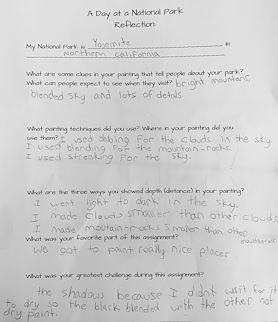 A Day at a National Park
Reflection
My National Park is Yosemite in
Northern California
What are some clues in your painting that tell people about your park?
What can people expect to see when they visit? bright mountans,
blended sky and lots of detals
What painting techniques did you use? Where in your painting did you
use them? I used dabing for the clouds in the sky.
I used blending for the mountain-rocks.
I used streaking for the sky.
What are the three ways you showed depth (distance) in your painting?
I went light to dark in the sky.
I made clouds smaller than other clouds
I made moutain-rocks smaller than other
What was your favorite part of this assignment?
We got to paint really nice places
What was your greatest challenge during this assignment?
the shadows because I didnt wait for it
to dry so the black blended with the other not
dry paint.